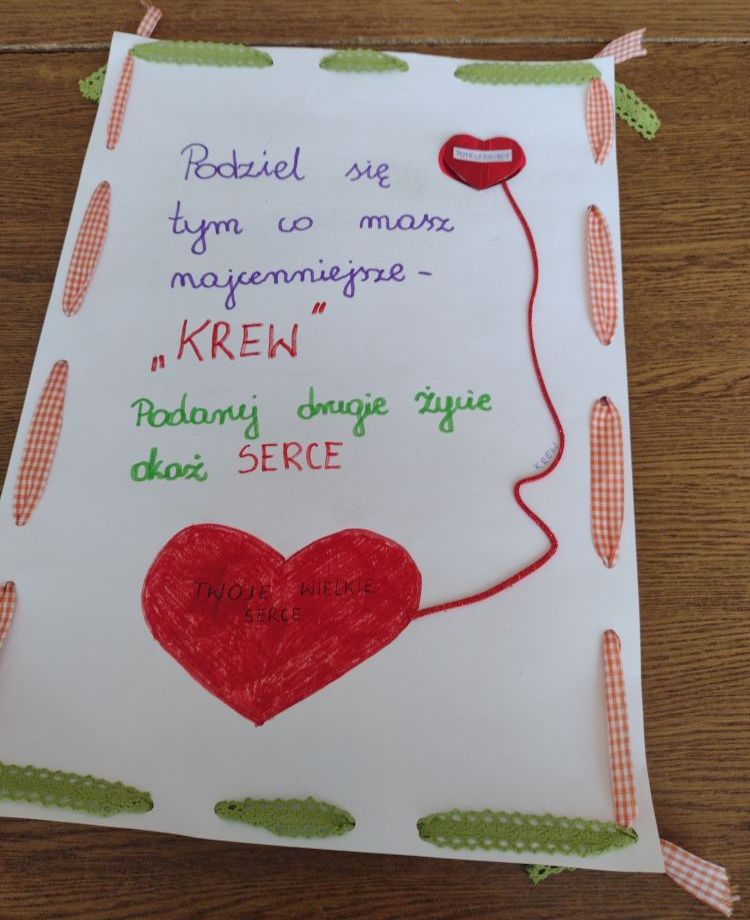 Podziel się
tym co masz
najcenniejsze -
„KREW"
Podaruj drugie życie
okaż SERCE
POTRZEBUJĄCY
KREW
TWOJE WIELKIE
SERCE